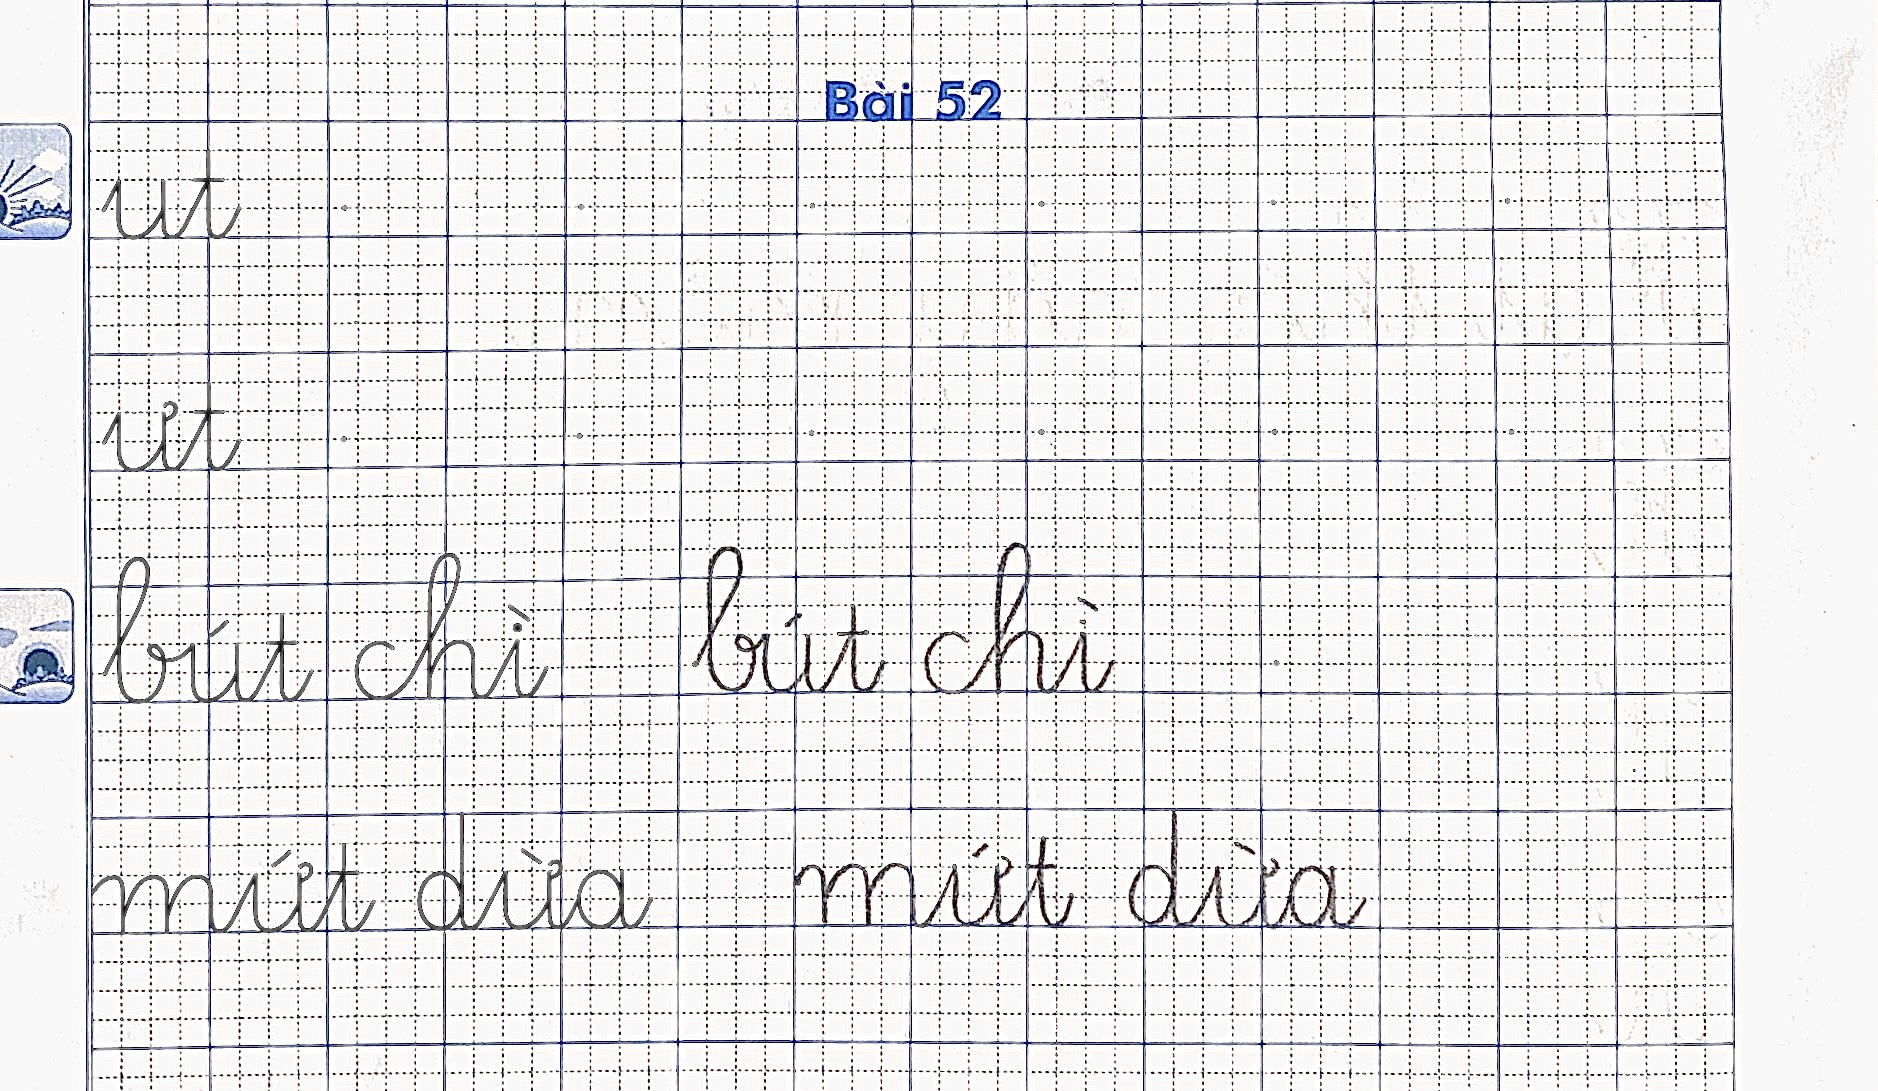 Bài 52
ut
ưt
bút chì bút chì
mứt dừa mứt dừa